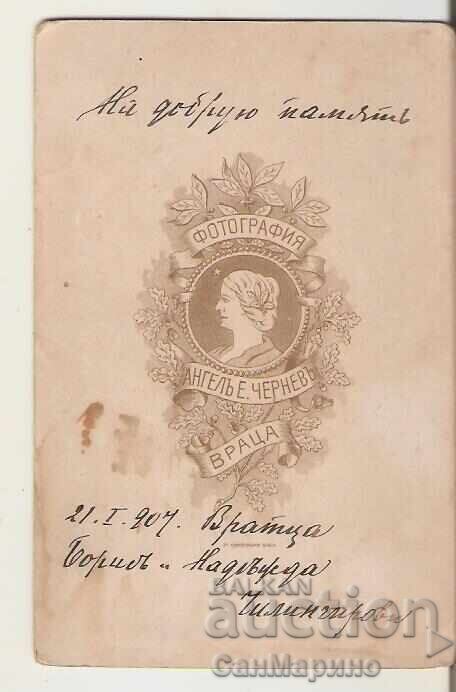 На добрую память
ФОТОГРАФИЯ
АНГЕЛЪ Е. ЧЕРНЕВЪ
ВРАЦА
21. I. 907. Вратца
Борисъ и Надѣжда
Чилингирови
BALKAN
auction
СанМарино